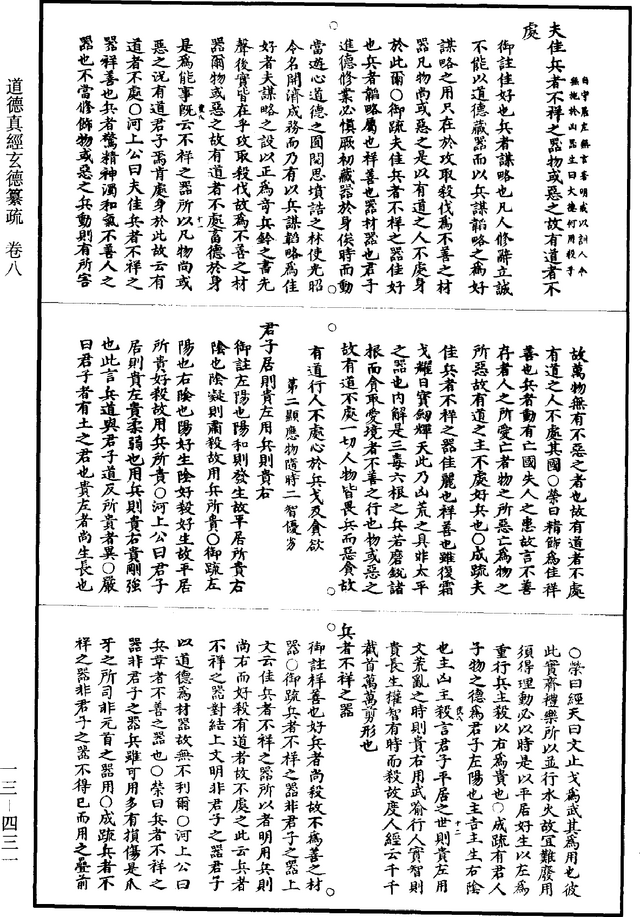 道德真經玄德纂疏　卷八
夫佳兵者不祥之器物或惡之故有道者不
處
御註佳好也兵者謀略也凡人修辭立誠
不能以道德藏器而以兵謀韜略之為好
謀略之用只在於攻取殺伐為不善之材
器凡物尚或惡之是以有道之人不處身
於此爾○御疏夫佳兵者不祥之器佳好
也兵者韜略屬也祥善也器材器也君子
進德修業必慎厥初藏器於身俟時而動
當遊心道德之囿閱思墳誥之林使光昭
令名開濟成務而乃有以兵謀韜略為佳
好者夫謀略之設以正為奇兵鈐之書先
聲後實皆在乎攻取殺伐故為不善之材
器爾物或惡之故有道者不處畜德於身
是為能事既云不祥之器所以凡物尚或
惡之况有道君子焉肯處身於此故云有
道者不處○河上公曰夫佳兵者不祥之
器祥善也兵者驚精神濁和氣不善人之
器也不當修飾物或惡之兵動則有所害
故萬物無有不惡之者也故有道者不處
有道之人不處其國○榮曰精飾為佳祥
善也兵者動有亡國失人之患故言不善
存者人之所愛亡者物之所惡亡為物之
所惡故有道之主不處好兵也○成疏夫
佳兵者不祥之器佳麗也祥善也雖復霜
戈耀日寶劒輝天此乃凶荒之具非太平
之器也内解是三毒六根之兵若磨銳諸
根而貪取愛境者不善之行也物或惡之
故有道不處一切人物皆畏兵而惡食故
有道行人不處心於兵戈及貪欲
第二顯應物隨時二智優劣
君子居則貴左用兵則貴右
御註左陽也陽和則發生故平居所貴右
陰也陰凝則肅殺故用兵所貴○御疏左
陽也右陰也陽好生陰好殺好生故平居
所貴好殺故用兵所貴○河上公曰君子
居則貴左貴柔弱也用兵則貴右貴剛強
也此言兵道與君子道反所貴者異○嚴
曰君子者有土之君也貴左者尚生長也
○榮曰經天曰文止戈為武其為用也彼
此實齊禮樂所以並行水火故宜難廢用
須得理動必以時是以平居好生以左為
重行兵主殺以右為貴也○成疏有君人
子物之德為君子左陽也主吉主生右陰
也主凶主殺言君子平居之世則貴左用
文荒亂之時則貴右用武喻行人實智則
貴長生權智有時而殺故度人經云千千
截首萬萬剪形也
兵者不祥之器
御註祥善也好兵者尚殺故不為善之材
器○御疏兵者不祥之器非君子之器上
文云佳兵者不祥之器所以者明用兵則
尚右而好殺有道者故不處之此云兵者
不祥之器對結上文明非君子之器君子
以道德為材器故無不利爾○河上公曰
兵革者不善之器也○榮曰兵者不祥之
器非君子之器兵雖可用多有損傷是爪
牙之所司非元首之器用○成疏兵者不
祥之器非君子之器不得已而用之疊前
一三—四三一